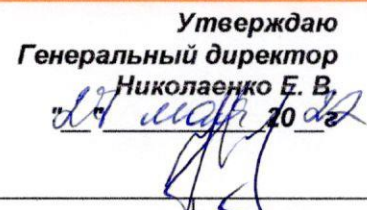 Утверждаю
Генеральный директор
Николаенко Е. В.
"27" мая 2022